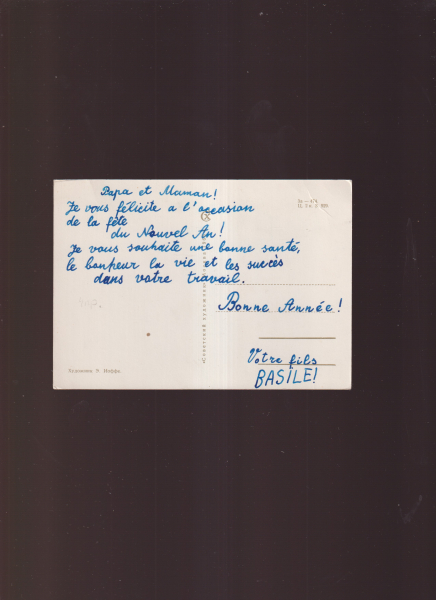 Papa et Maman!
Je vous félicite a l'occasion
de la fête
du Nouvel An!
Je vous souhaite une bonne santé,
le bonheur la vie et les succès
dans votre travail.
Bonne Année!
Votre fils
BASILE!
Художник Э.